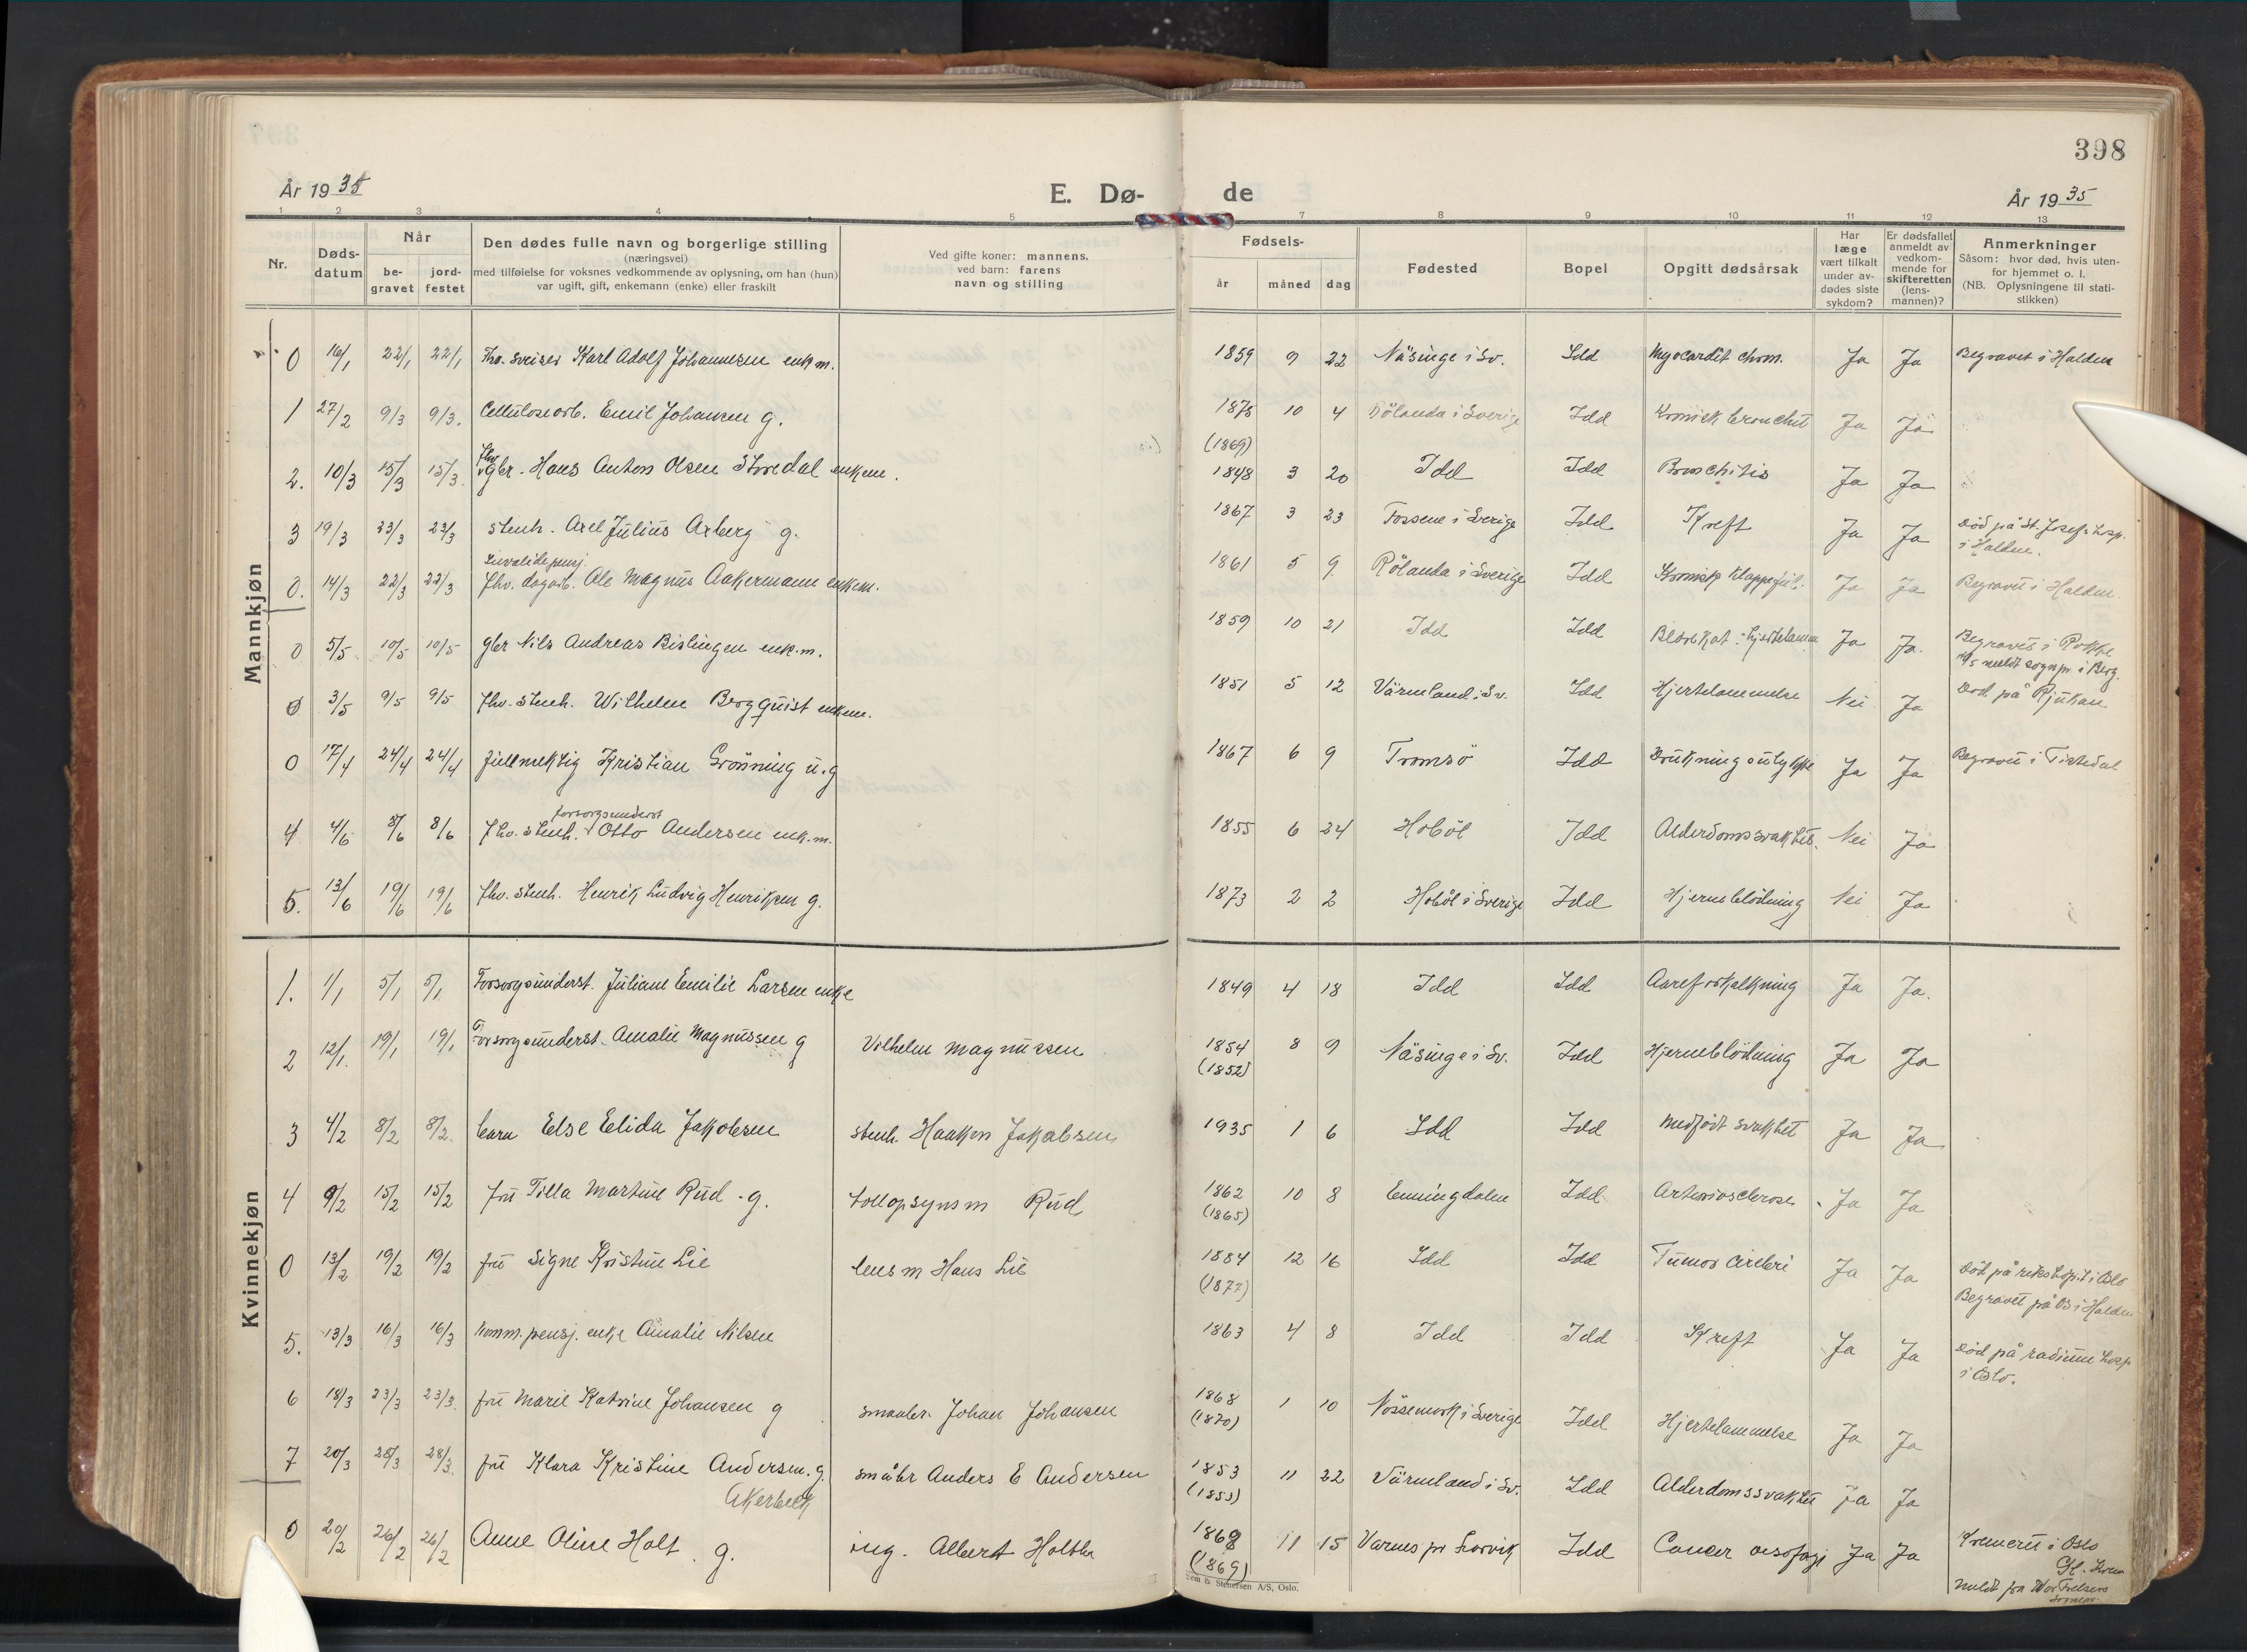 398
År 1935
E. Dø-
de
År 1935
1 2 3 4 5 7 8 9 10 11 12 13
Nr.
Døds-
datum
Når
be-
gravet
jord-
festet
Den dødes fulle navn og borgerlige stilling
(næringsvei)
med tilføielse for voksnes vedkommende av oplysning, om han (hun)
var ugift, gift, enkemann (enke) eller fraskilt
Ved gifte koner: mannens,
ved barn: farens
navn og stilling
Fødsels-
år måned dag
Fødested
Bopel
Opgitt dødsårsak
Har
læge
vært tilkalt
under av-
dødes siste
sykdom?
Er dødsfallet
anmeldt av
vedkom-
mende for
skifteretten
(lens-
mannen)?
Anmerkninger
Såsom: hvor død, hvis uten-
for hjemmet o. l.
(NB. Oplysningene til stati-
stikken)
Mannkjøn
0 16/1 22/1 22/1 Fhv. sveiser Karl Adolf Johannesen enkm. 1859 9 22 Näsinge i Sv. Idd Myocardit chron. Ja Ja Begravet i Halden
1 27/2 9/3 9/3. Cellulosearb. Emil Johansen g. 1878 10 4 Rölanda i Sverige Idd Kronisk bronchit Ja Ja
(1869)
2. 10/3 15/3 15/3. fhv gbr. Hans Anton Olsen Storedal enkem. 1848 3 20 Idd Idd Bronchitis Ja Ja
3 19/3 23/3 23/3 stenh. Axel Julius Arberg g. 1867 3 23 Fossene i Sverige Idd Kreft Ja Ja Död på St. Josefs hosp.
i Halden.
Invalidepensj.
0. 14/3 22/3 22/3 fhv. dagarb. Ole Magnus Aakermann enkem. 1861 5 9 Rölanda i Sverige Idd Kronisk klappefeil. Ja Ja Begravet i Halden
0 5/5 10/5 10/5 gbr Nils Andreas Bislingen enk.m. 1859 10 21 Idd Idd Blærekat: hjertelamm Ja Ja. Begravet i Rokke
meldt sognepr. i Berg.
0 3/5 9/5 9/5 fhv. stenh. Wilhelm Bergquist enkem. 1851 5 12 Värmland i Sv. Idd Hjertelammelse Nei Ja Död på Rjukan
0 17/4 24/4 24/4 fullmektig Kristian Grönning u.g 1867 6 9 Tromsö Idd Drukningsulykke Ja Ja Begravet i Tistedal
forsorgsunderst
4 4/6 8/6 8/6 fhv. stenh. Otto Andersen enk.m. 1855 6 24 Hoböl Idd Alderdomssvakhet. Nei Ja
5. 13/6 19/6 19/6 fhv. stenh. Henrik Ludvig Henriksen g. 1873 2 2 Hoböl i Sverige Idd Hjerneblödning Nei Ja
Kvinnekjøn
1. 1/1 5/1 5/1 Forsorgsunderst. Juliane Emilie Larsen enke 1849 4 18 Idd Idd Aareforkalkning Ja Ja.
2 12/1. 19/1 19/1 Forsorgsunderst. Amalie Magnussen g Vilhelm Magnussen 1854 8 9 Näsinge i Sv. Idd Hjerneblödning Ja Ja
(1852)
3 4/2 8/2 8/2. barn Else Elida Jakobsen stenh. Haakon Jakobsen 1935 1 6 Idd Idd Medfödt svakhet Ja Ja
4 9/2 15/2 15/2 fru Tilla Martine Rud - g. tollopsynsm Rud 1862 10 8 Enningdalen Idd Arteriosclerose Ja Ja
(1865)
0 13/2 19/2 19/2 fru Signe Kristine Lie lensm Hans Lie 1884 12 16 Idd Idd Tumor cerebri Ja Ja Död på rikshospit. i Oslo
(1877) Begravet på Os i Halden
5. 13/3 16/3 16/3 komm. pensj. enke Amalie Nilsen 1863 4 8 Idd Idd Kreft Ja Ja Död på radium hosp
i Oslo.
6 18/3 23/3 23/3. fru Marie Katrine Johansen g smaabr. Johan Johansen 1868 1 10 Nössemark i Sverige Idd Hjertelammelse Ja Ja
(1870)
7 20/3 28/3 28/3. fru Klara Kristine Andersen. g. småbr Anders E Andersen 1853 11 22 Värmland i Sv. Idd Alderdomssvakhet Ja Ja
Akerbekk (1853)
0 20/2 26/2 26/2 Anne Oline Holt g. ing. Albert Holter 1868 11 15 Varnes pr Larvik Idd Cancer oesofagi Ja Ja Kremert i Oslo
(1869)
meldt fra Vor Frelsers
Sem & Stenersen A/S, Oslo.